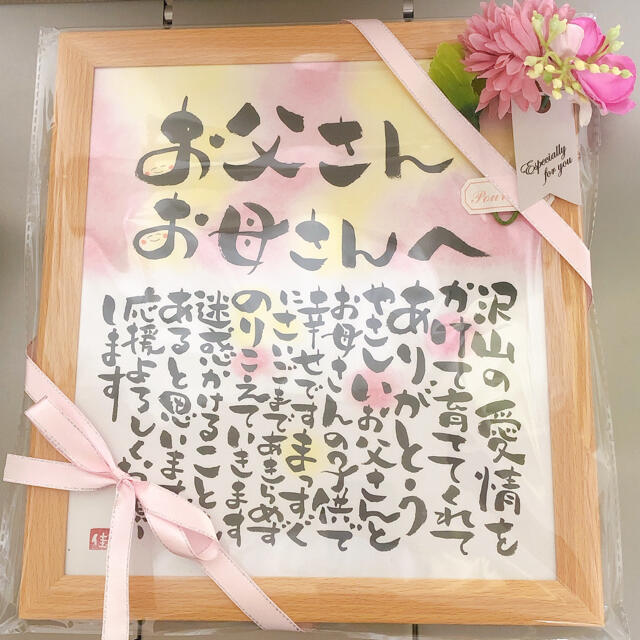 お父さん
お母さんへ
沢山の愛情を
かけて育ててくれて
ありがとう
やさしいお父さんと
お母さんの子供で
幸せです まっすぐ
にさいごまであきらめず
のりこえていきます
迷惑かけること
あると思います
応援よろしくお願い
します
Especially
for you
Pour
佳